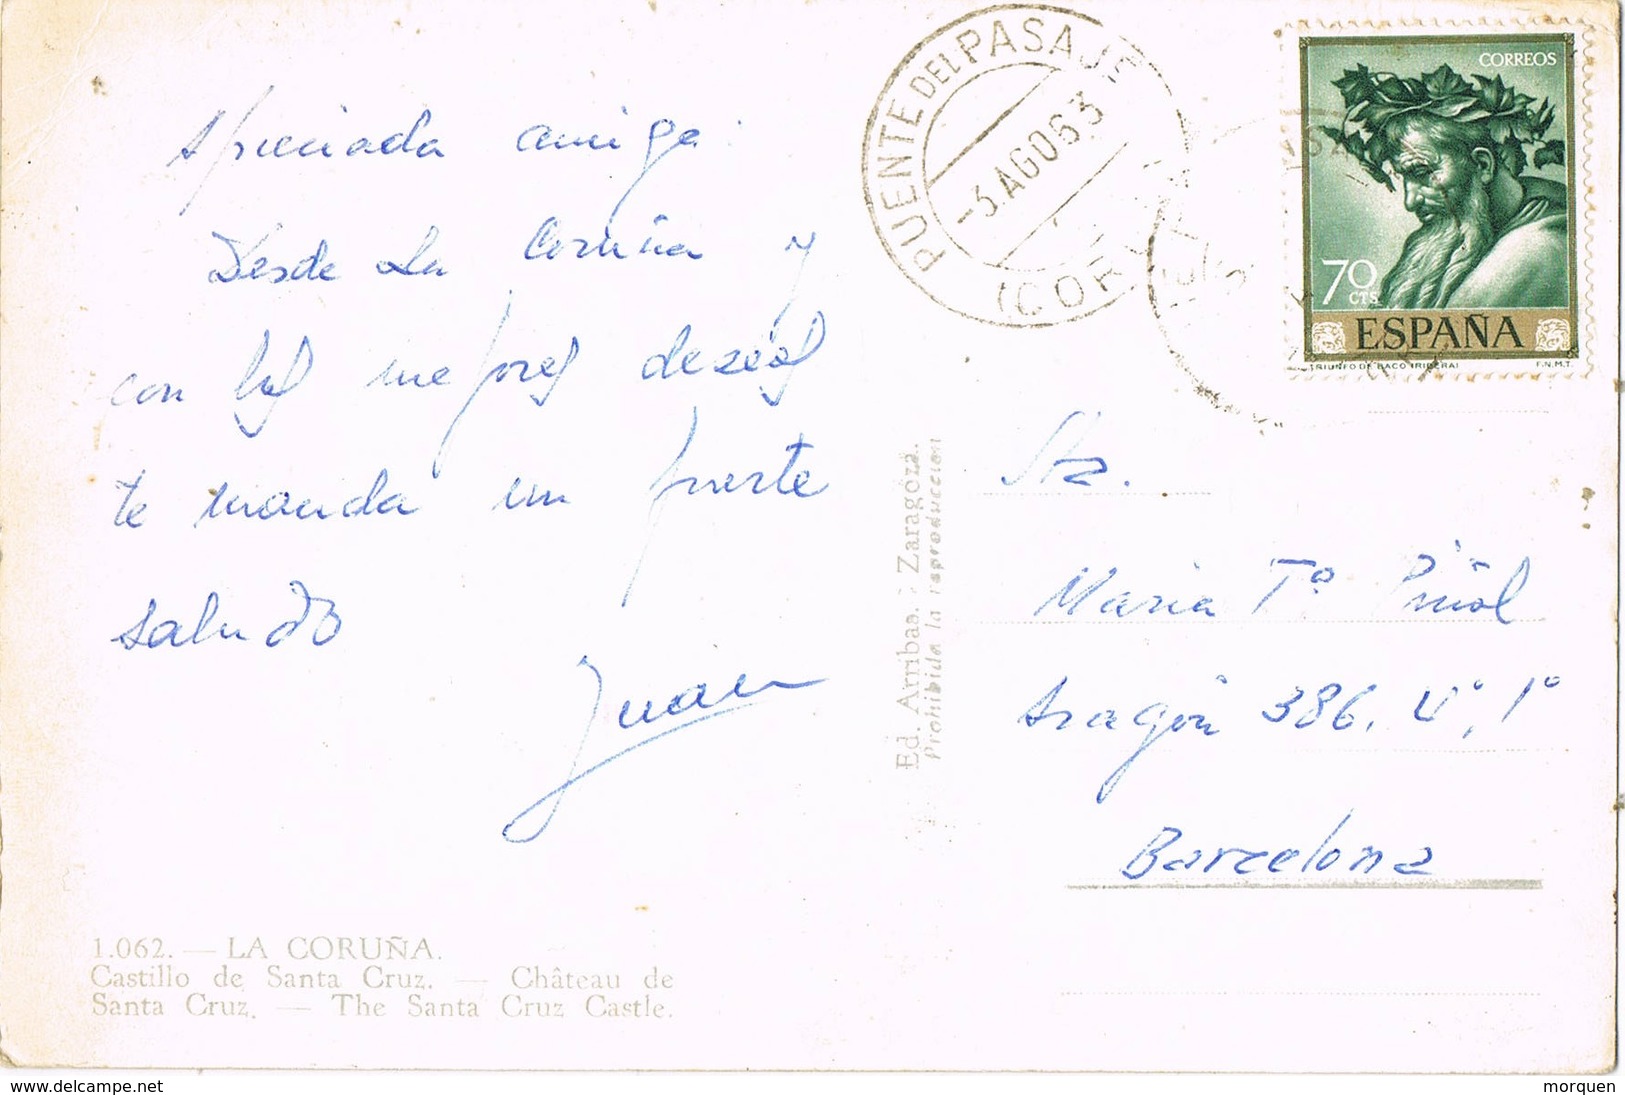 Apreciada amiga:
Desde La Coruña y
con los mejores deseos
te manda un fuerte
saludo
Juan
1.062. — LA CORUÑA.
Castillo de Santa Cruz. — Château de
Santa Cruz. — The Santa Cruz Castle.
Ed. Arribas. - Zaragoza.
Prohibida la reproducción
PUENTE DEL PASAJE
-3.AGO63
(CORU
CORREOS
70
CTS
ESPAÑA
TRIUNFO DE BACO (RIBERA)
F.N.M.T.
Sta.
Maria Tª Piñol
Aragón 386, 4º, 1º
Barcelona
www.delcampe.net
morquen